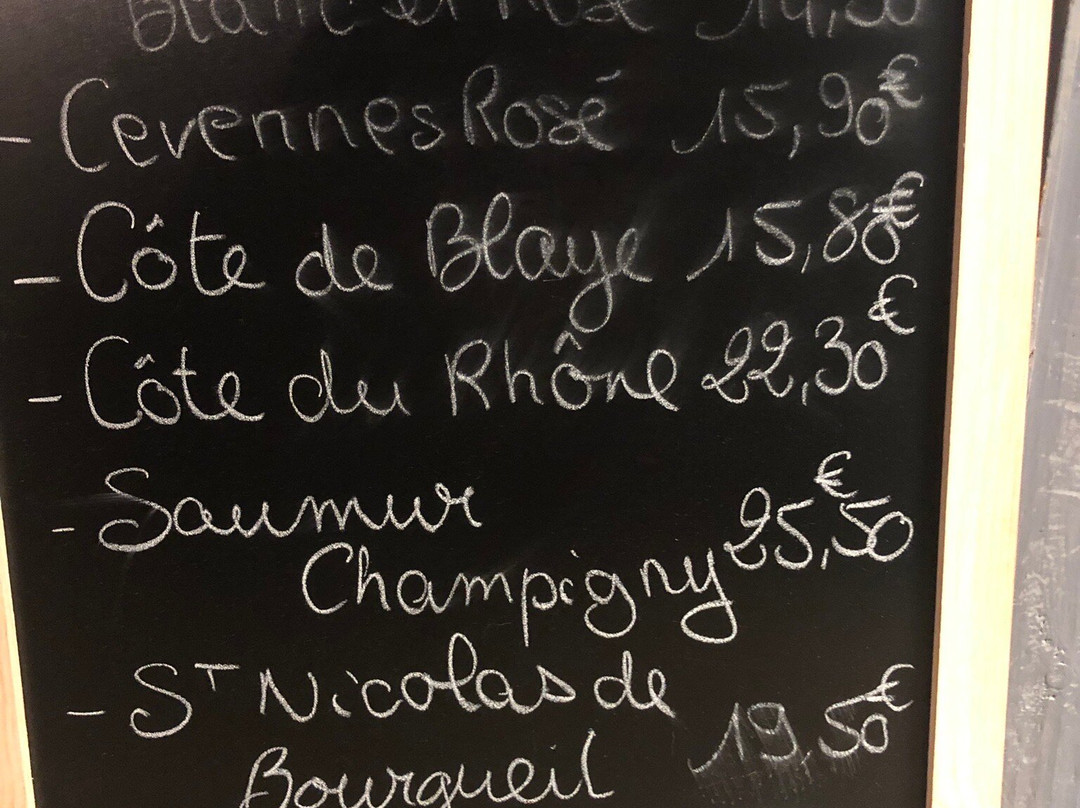 Blanc et Rosé 14,50
- Cevennes Rosé 15,90€
- Côte de Blaye 15,80€
- Côte du Rhône 22,30€
- Saumur
Champigny 25,50€
- ST Nicolas de
Bourgueil 19,50€